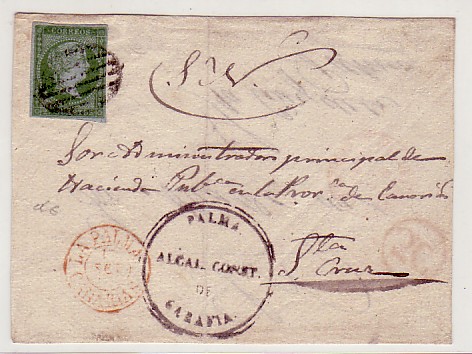 CORREOS
S. N.
Sor Administrador principal de
Hacienda Pubca en la Prov.a de Canarias
Sta
S. Cruz
LA PALMA
PALMA
ALCAL. CONST.
DE
GARAFIA.